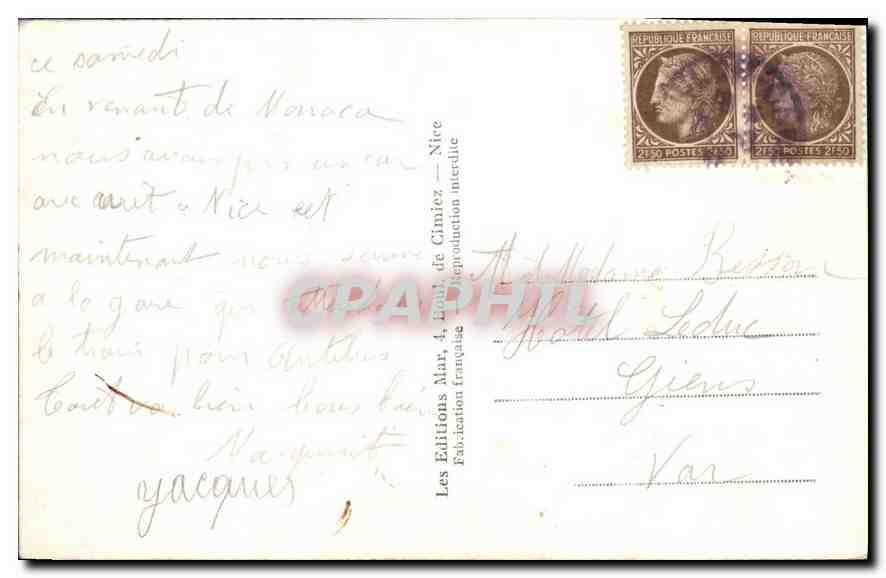 ce samedi
En venant de Monaco
nous avons pris un car
avec arrêt a Nice et
maintenant nous somme
a la gare qui
le train pour Antibes
Tout va bien bons
jacques
Les Editions Mar, 4, Boul. de Cimiez — Nice
Fabrication française Reproduction interdite
REPUBLIQUE FRANÇAISE
2F50 POSTES 2F50
REPUBLIQUE FRANÇAISE
2F50 POSTES 2F50
CPAPHIL
Madame Besson
Hôtel Leduc
Giens
Var